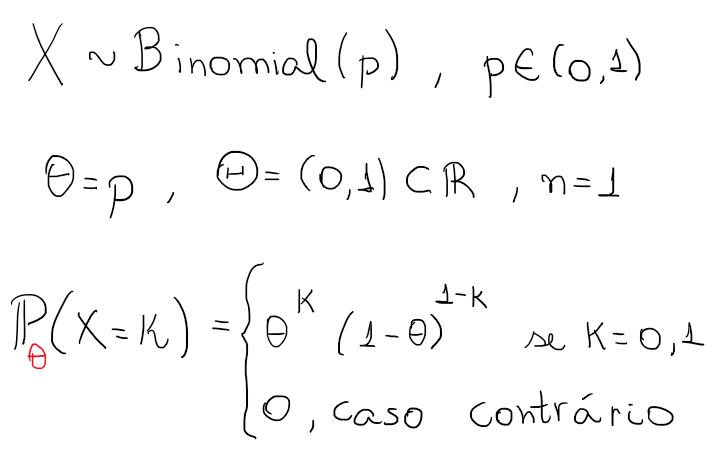 X ~ Binomial(p), p∈(0,1)
θ=p, Θ=(0,1)⊂ℝ, n=1
ℙ_θ(X=K) = { θ^K (1-θ)^{1-K} se K=0,1
0, caso contrário